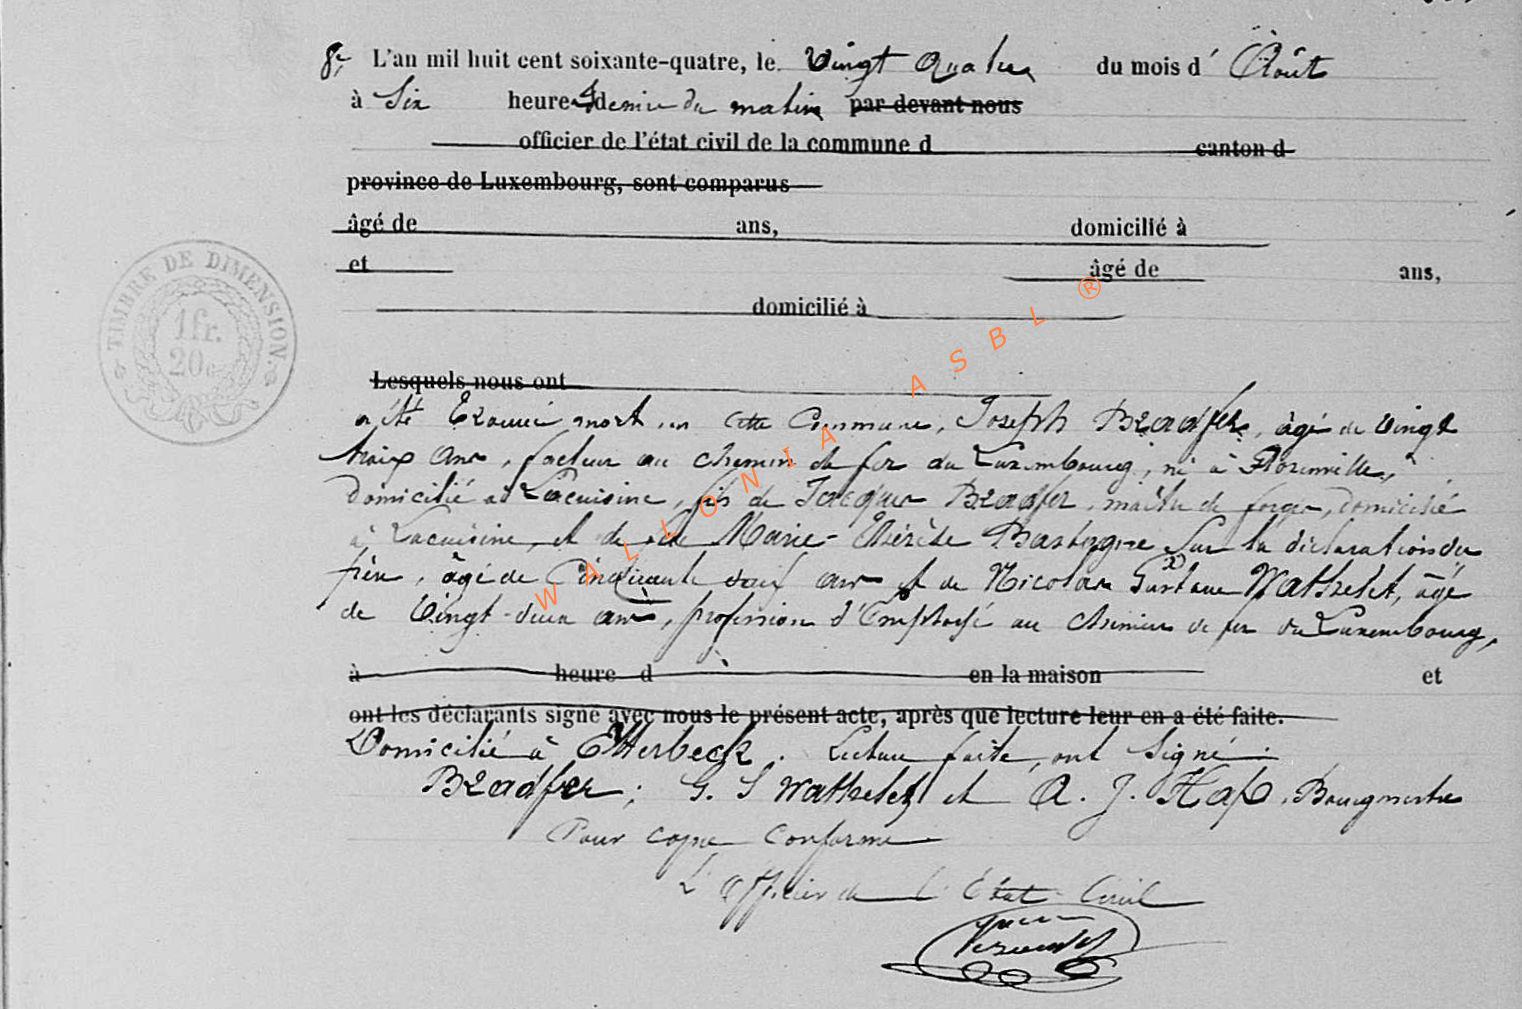 8e, L'an mil huit cent soixante-quatre, le Vingt Quatre du mois d' Août
à Six heures & demie du matin par devant nous
officier de l'état civil de la commune d canton d
province de Luxembourg, sont comparus
âgé de ans, domicilié à
et âgé de ans,
domicilié à
TIMBRE DE DIMENSION.
1 fr.
20 c
Lesquels nous ont
a été trouvé mort en cette Commune, Joseph Bradfer, âgé de Vingt
trois ans, facteur au chemin de fer du Luxembourg, né à Florenville,
Domicilié à Lacuisine, fils de Jacques Bradfer, maître de forges, domicilié
à Lacuisine, et de Marie-Thérèse Bastogne Sur la déclaration du
père, âgé de Cinquante neuf ans et de Nicolas Gustave Wathelet, âgé
de Vingt-deux ans, profession d'Employé au chemin de fer du Luxembourg,
à heure d en la maison et
ont les déclarants signé avec nous le présent acte, après que lecture leur en a été faite.
Domicilié à Etterbeck. Lecture faite, ont Signé:
Bradfer; G. S Wathelet et A. J. Hap, Bourgmestre
Pour copie Conforme
L'Officier de l'État Civil
WALLONIA ASBL ®